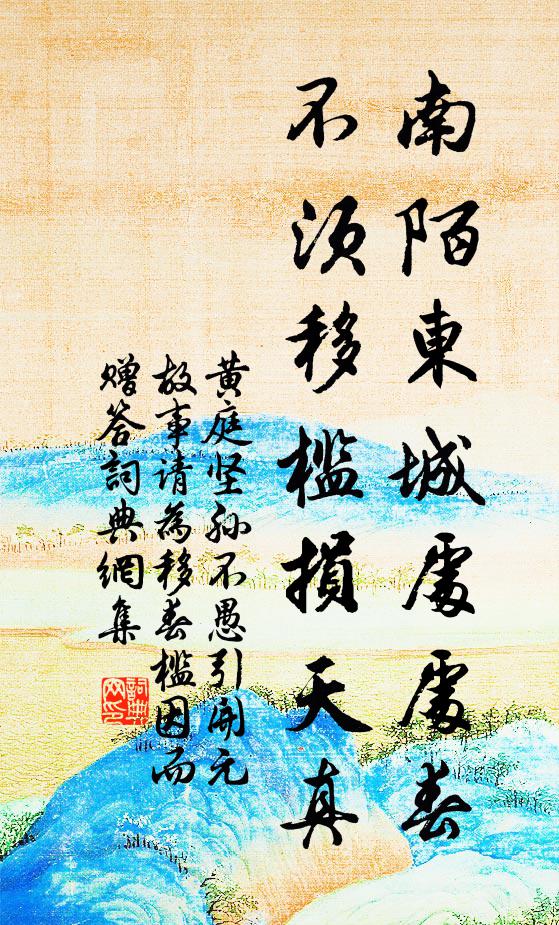 南陌東城處處春
不須移檻損天真
黄庭坚孙不愚引開元
故事请為移春檻因而
赠答詞典網集
詞典网印